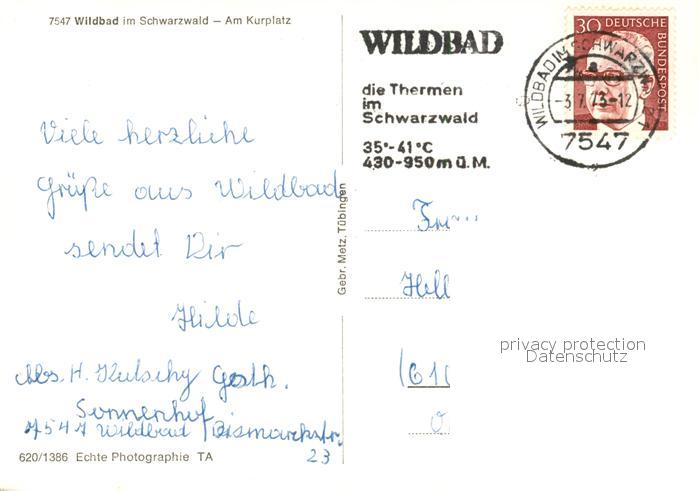 7547 Wildbad im Schwarzwald – Am Kurplatz
Viele herzliche
Grüße aus Wildbad
sendet Dir
Hilde
Abs. H. Kutschy Gasth.
Sonnenhof
7547 Wildbad / Bismarckstr.
23
620/1386 Echte Photographie TA
Gebr. Metz, Tübingen
WILDBAD
die Thermen
im
Schwarzwald
35°-41°C
430-950m ü.M.
30 DEUTSCHE
BUNDESPOST
WILDBAD IM SCHWARZW
a
-3.7.73-12
7547
Hell
(61
privacy protection
Datenschutz